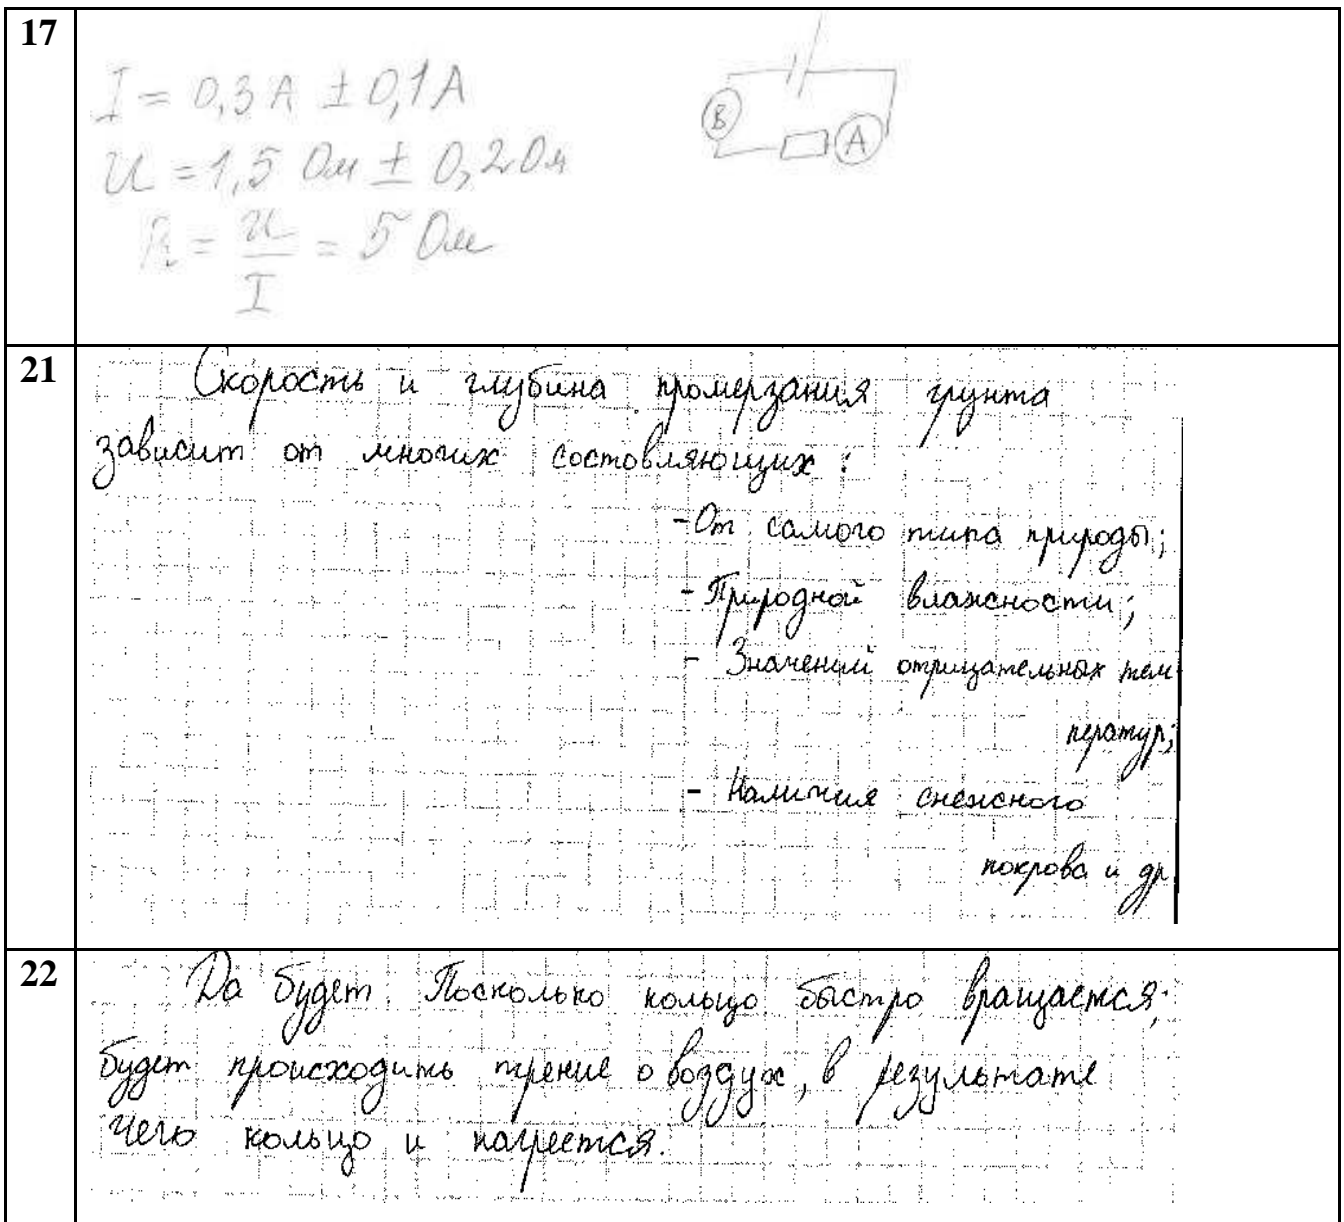 17
I = 0,3 А ± 0,1 А
U = 1,5 Ом ± 0,2 Ом
R = U / I = 5 Ом
В
А
21
Скорость и глубина промерзания грунта
зависит от многих состовляющих :
- От самого типа природы;
- Природной влажности;
- Значений отрицательных тем
ператур;
- Наличия снежного
покрова и др
22
Да будет. Посколько кольцо быстро вращается;
будет происходить трение о воздух, в результате
чего кольцо и нагреется.